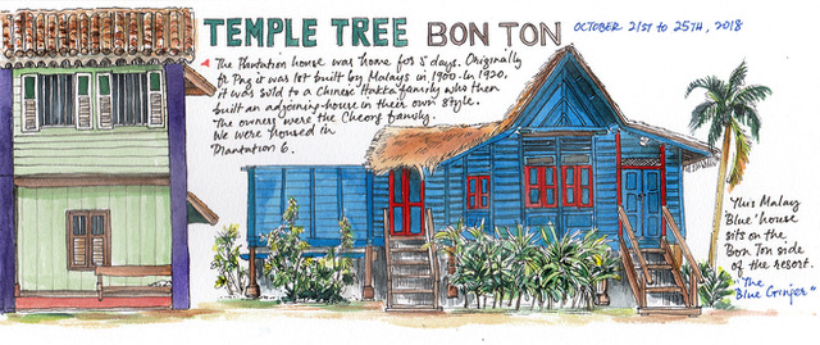 TEMPLE TREE BON TON OCTOBER 21ST to 25TH, 2018
The Plantation house was home for 5 days. Originally
fr Png it was 1st built by Malays in 1900. In 1920,
it was sold to a Chinese Hakka family who then
built an adjoining house in their own style.
The owners were the Cheong family.
We were housed in
Plantation 6.
This Malay
'Blue' house
sits on the
Bon Ton side
of the resort.
"The
Blue Ginger"